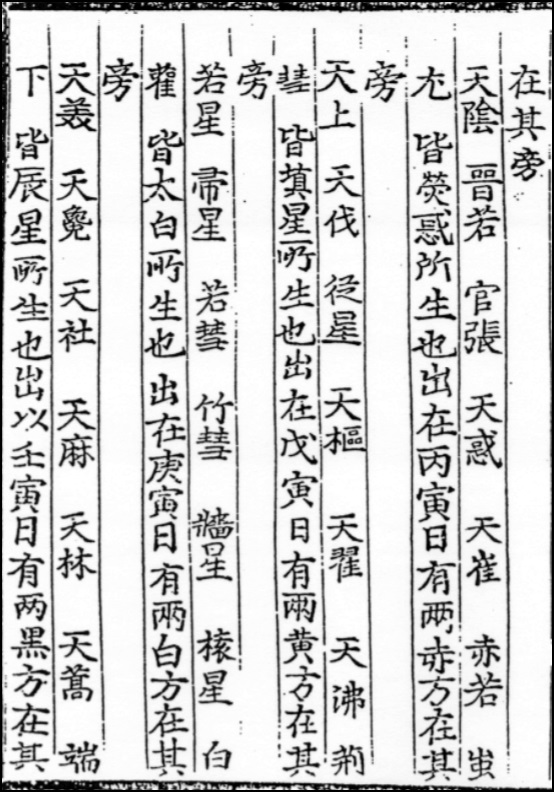 在其旁
天陰 晉若 官張 天惑 天崔 赤若 蚩
尤 皆熒惑所生也出在丙寅日有两赤方在其
旁
天上 天伐 從星 天樞 天翟 天沸 荊
彗 皆填星所生也出在戊寅日有兩黃方在其
旁
若星 帚星 若彗 竹彗 牆星 榬星 白
雚 皆太白所生也出在庚寅日有兩白方在其
旁
天美 天毚 天社 天麻 天林 天蒿 端
下 皆辰星所生也出以壬寅日有两黑方在其